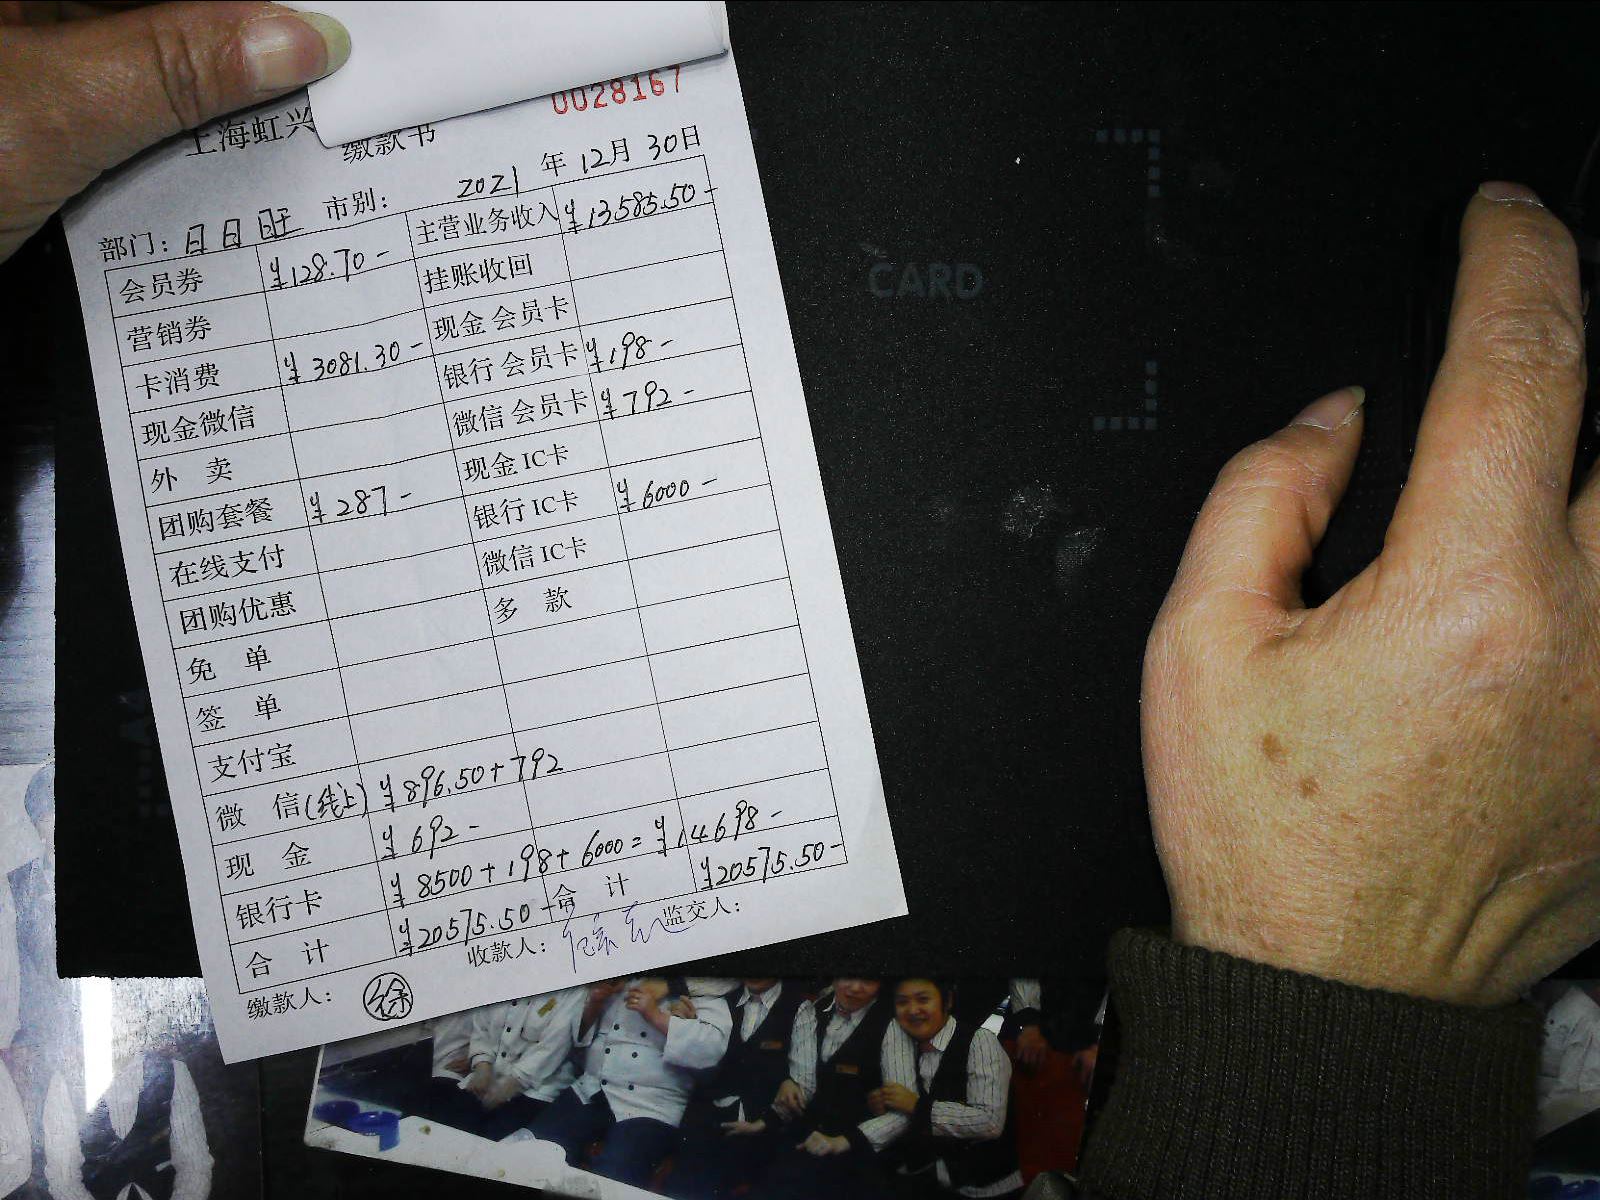 0028167
上海虹兴
缴款书
部门：日日旺 市别： 2021 年 12月 30日
会员券 ¥128.70- 主营业务收入 ¥13585.50-
营销券 挂账收回
卡消费 ¥3081.30- 现金 会员卡
现金微信 银行 会员卡 ¥198-
外 卖 微信 会员卡 ¥792-
团购套餐 ¥287- 现金 IC卡
在线支付 银行 IC卡 ¥6000-
团购优惠 微信 IC卡
免 单 多 款
签 单
支付宝
微 信(线上) ¥896.50+792
现 金 ¥692-
银行卡 ¥8500+198+6000=¥14698-
合 计 ¥20575.50- 合 计 ¥20575.50-
缴款人： 徐 收款人： 监交人：
CARD